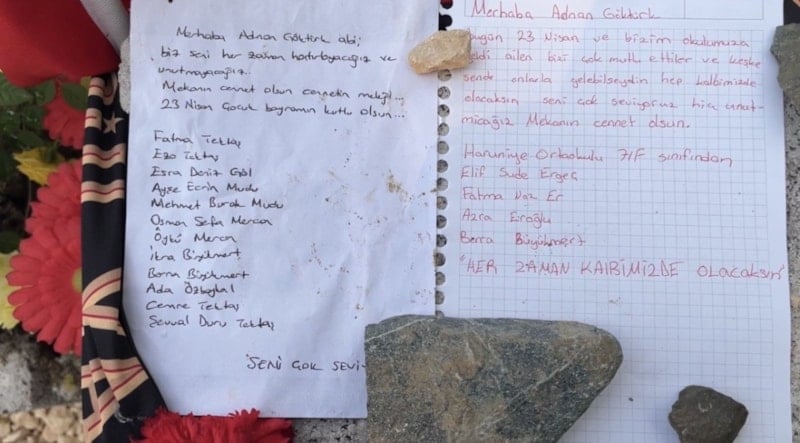 Merhaba Adnan Göktürk abi;
biz seni her zaman hatırlayacağız ve
unutmayacağız..
Mekanın cennet olsun cennetin meleği...
23 Nisan Çocuk bayramın kutlu olsun...
Fatma Tektaş
Ezo Tektaş
Esra Deniz Göl
Ayşe Ecrin Mudu
Mehmet Burak Mudu
Osman Sefa Mercan
Öykü Mercan
İkra Büyükmert
Berra Büyükmert
Ada
Cemre Tektaş
Şevval Duru Tektaş
SENİ ÇOK SEVİ
Merhaba Adnan Göktürk
bugün 23 Nisan ve bizim okulumuza
geldi ailen bizi çok mutlu ettiler ve keşke
sende onlarla gelebilseydin hep kalbimizde
olacaksın seni çok seviyoruz hiç unut-
mıcağız Mekanın cennet olsun.
Haruniye Ortaokulu 7/F sınıfından
Elif Sude Ergeç
Fatma Naz Er
Azra Eroğlu
Berra Büyükmert
"HER ZAMAN KALBİMİZDE OLACAKSIN"